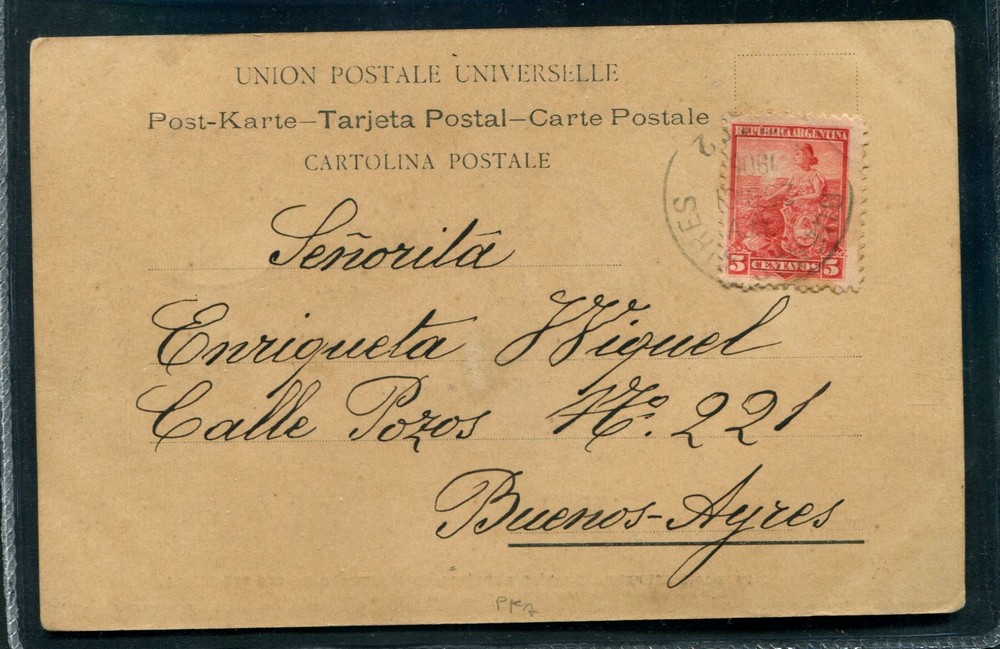 UNION POSTALE UNIVERSELLE
Post-Karte—Tarjeta Postal—Carte Postale
CARTOLINA POSTALE
REPUBLICA ARGENTINA
5 CENTAVOS 5
Señorita
Enriqueta Wiguel
Calle Pozos Nº. 221
Buenos-Ayres